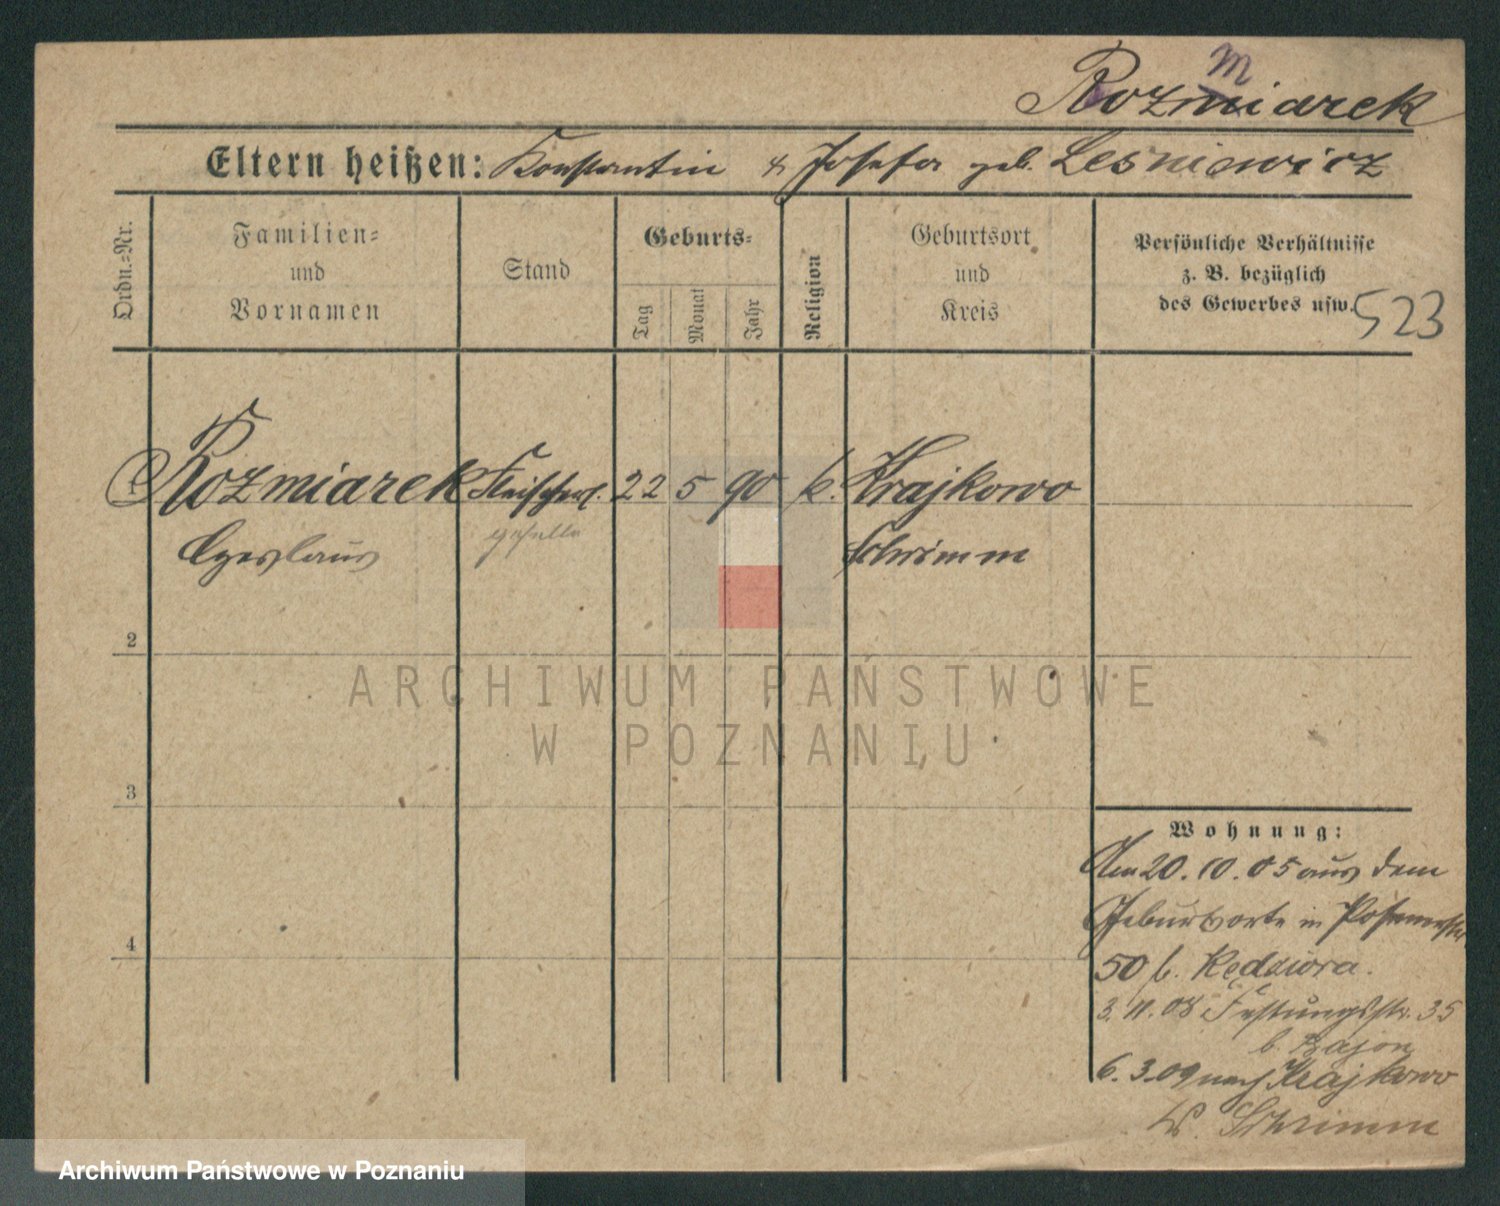 m
Rozmiarek
Eltern heißen: Konstantin & Josefa geb. Lesniewicz
Ordn.-Nr.
Familien-
und
Vornamen
Stand
Geburts-
Tag
Monat
Jahr
Religion
Geburtsort
und
Kreis
Persönliche Verhältnisse
z. B. bezüglich
des Gewerbes usw.
523
Rozmiarek Fleischerl. 22 5 90 k. Krajkowo
Czeslaus geselle Schrimm
2
3
4
ARCHIWUM PAŃSTWOWE
W POZNANIU
Wohnung:
Am 20.10.05 aus dem
Geburtsorte in
50 b. Kędziora.
3.11.08 Festungsstr. 35
b. Rajon
6.3.09 nach Krajkowo
Schrimm
Archiwum Państwowe w Poznaniu